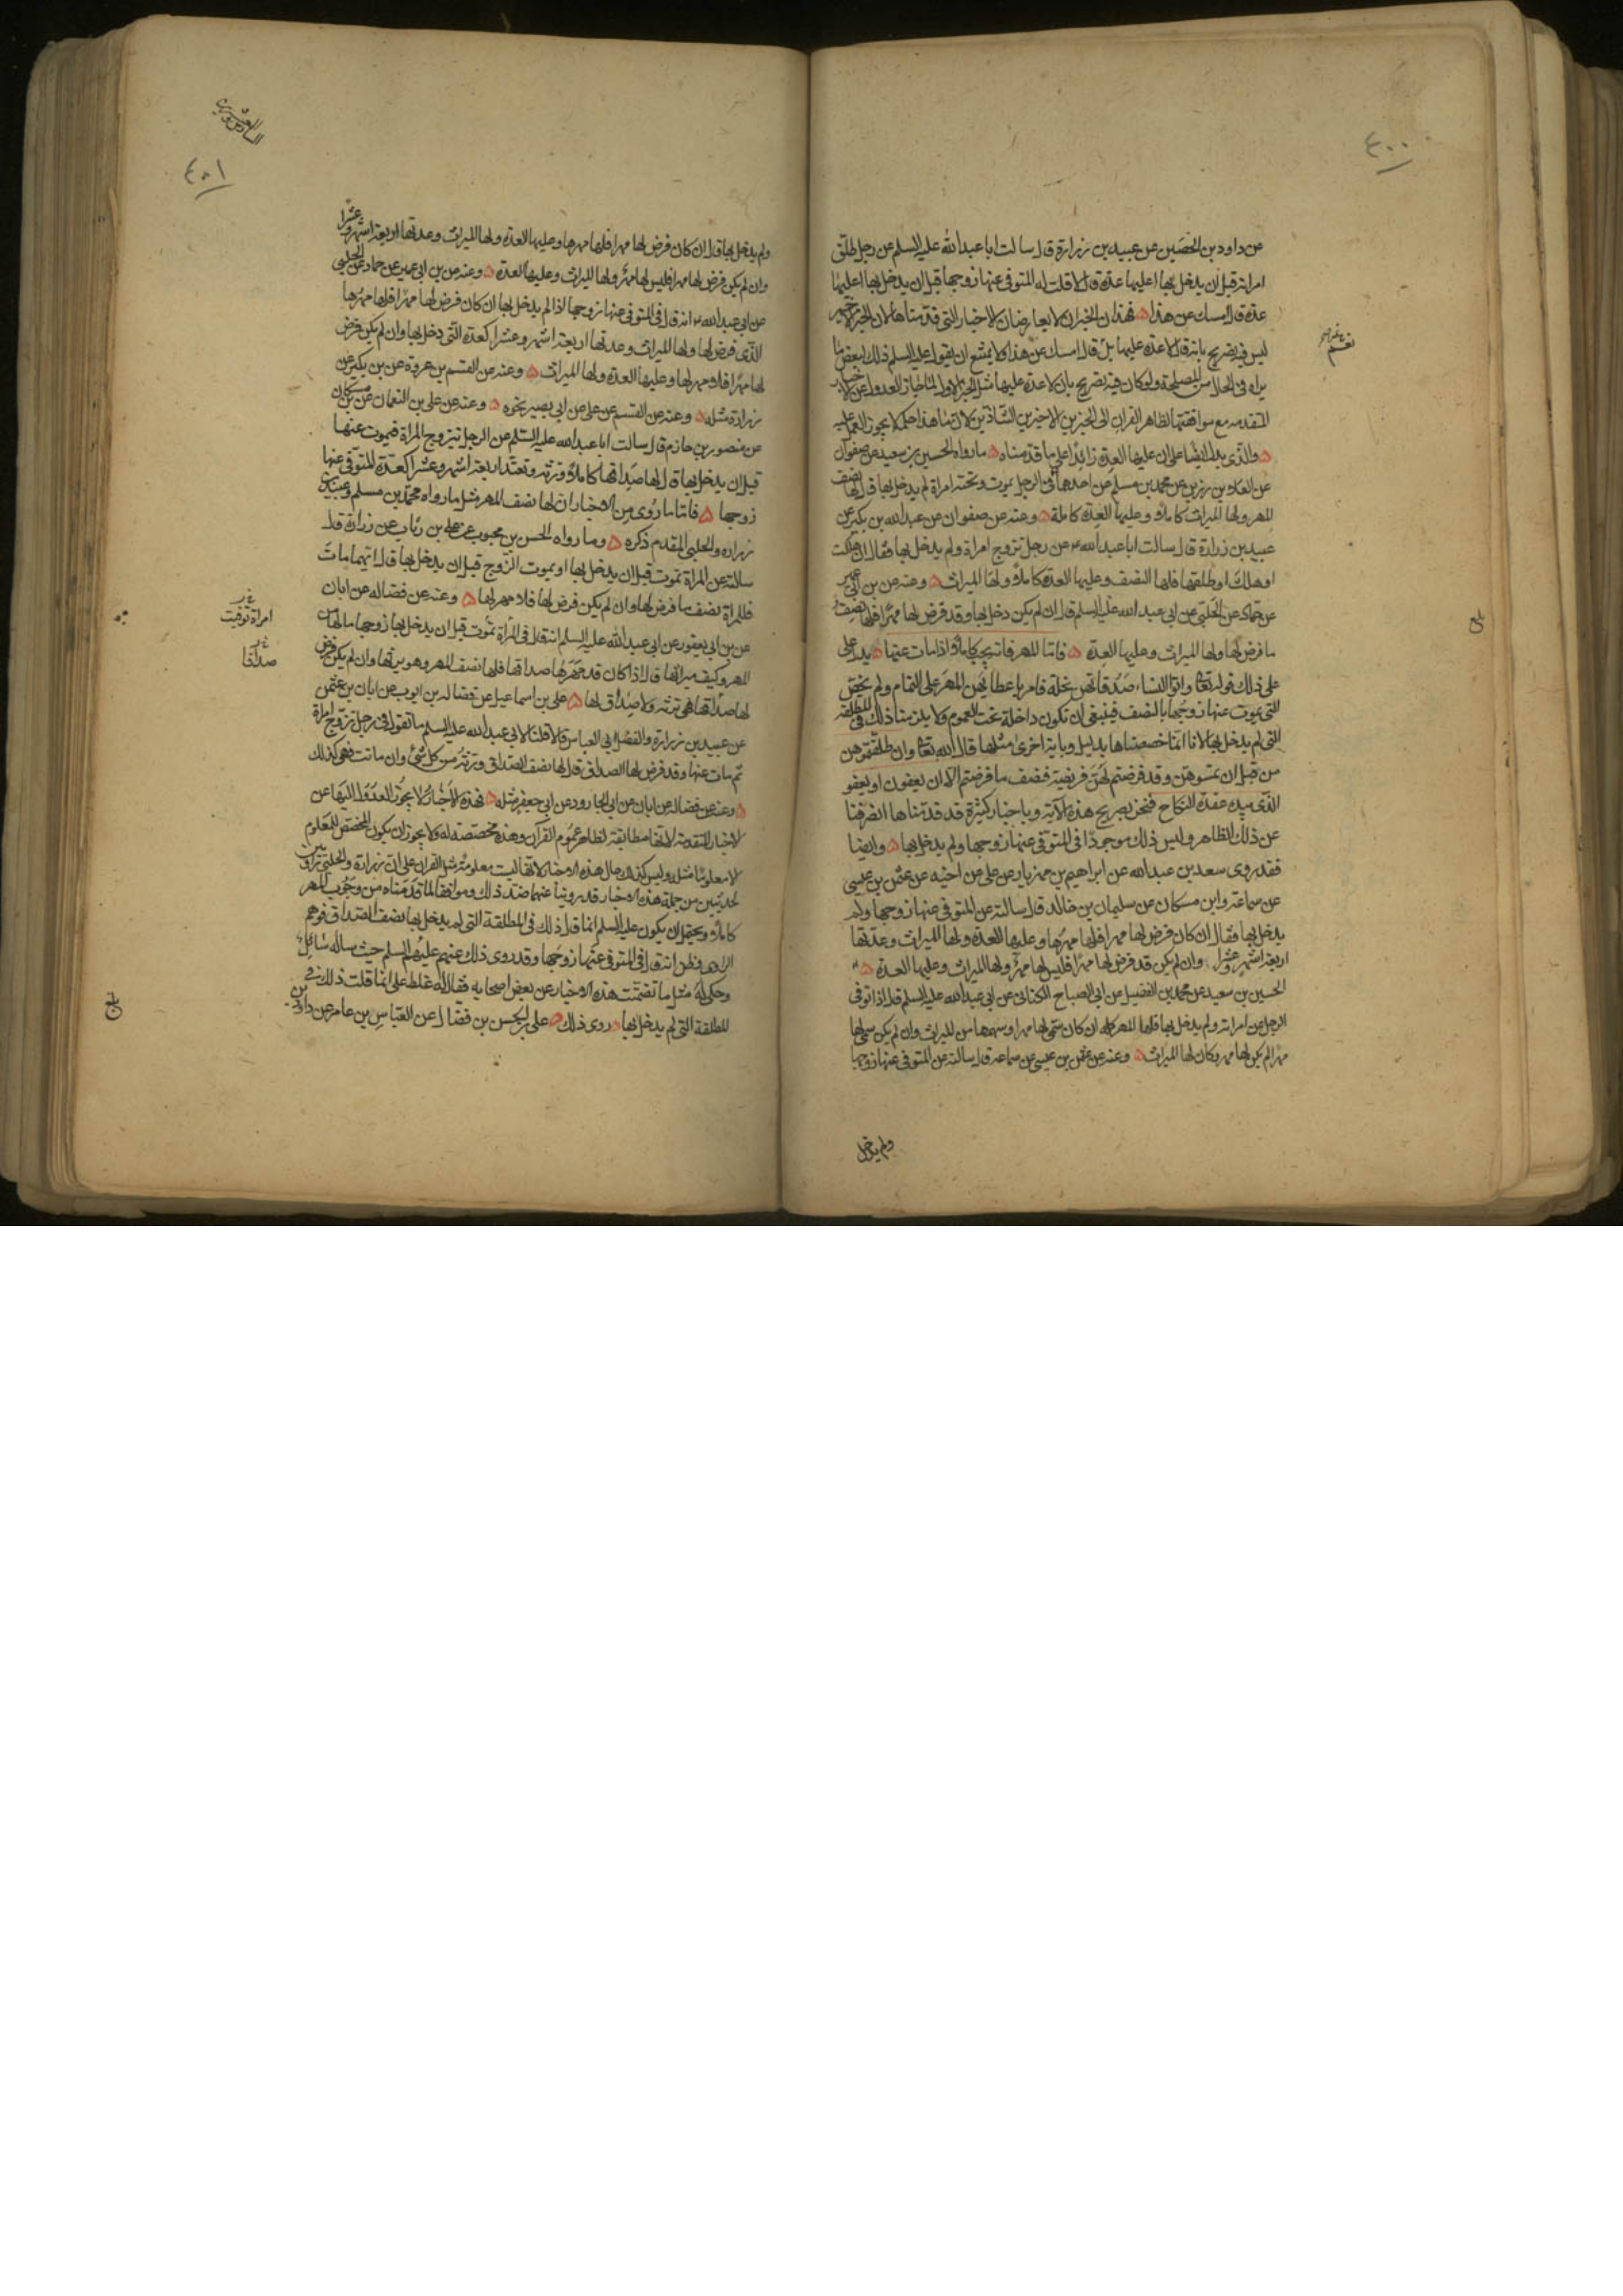 ٤٠٠
عن داود بن الحصين عن عبيد بن زرارة قال سالت ابا عبد الله عليه السلم عن رجل طلق
امراته قبل ان يدخل بها اعليها عدة قال لا قلت له المتوفى عنها زوجها قبل ان يدخل بها اعليها
عدة قال امسك عن هذا فهذان الخبران لا يعارضان الاخبار التي قدمناها لان الخبر الاخير
ليس فيه تصريح بانه قال لا عدة عليها بل قال امسك عن هذا ولا يمتنع ان يقول عليه السلم ذلك لبعض ما
يراه في الحال من المصلحة ولو كان فيه تصريح بان لا عدة عليها مثل الخبر الاول لما جاز العدول عن الاخبار
المتقدمه مع موافقتها لظاهر القران الى الخبرين الاخيرين الشاذين لان ما هذا حكمه لا يجوز العمل عليه
والذي يدل ايضا على ان عليها العدة زائدا على ما قدمناه ما رواه الحسين بن سعيد عن صفوان
عن العلاء بن رزين عن محمد بن مسلم عن احدهما في الرجل يموت وتحته امراة لم يدخل بها قال لها نصف
المهر ولها الميراث كاملا وعليها العدة كاملة وعنه عن صفوان عن عبد الله بن بكير عن
عبيد بن زرارة قال سالت ابا عبد الله ع عن رجل تزوج امراة ولم يدخل بها فقال ان هلكت
او هلك او طلقها فلها النصف وعليها العدة كاملا ولها الميراث وعنه عن بن ابي عمير
عن حماد عن الحلبي عن ابي عبد الله عليه السلم قال ان لم يكن دخل بها وقد فرض لها مهرا فلها نصف
ما فرض لها ولها الميراث وعليها العدة فاما المهر فانه يجب كاملا اذا مات عنها يدل على
على ذلك قوله تعالى واتوا النساء صدقاتهن نحلة فامر باعطائهن المهر على التمام ولم يخص
التي يموت عنها زوجها بالنصف فينبغي ان تكون داخلة تحت العموم ولا يلزمنا ذلك في المطلقة
التي لم يدخل بها لانا انما خصصناها بدليل وباية اخرى مثلها قال الله تعالى وان طلقتموهن
من قبل ان تمسوهن وقد فرضتم لهن فريضة فنصف ما فرضتم الا ان يعفون او يعفو
الذي بيده عقدة النكاح فنحن بصريح هذه الاية وباخبار كثيرة قد قدمناها انصرفنا
عن ذلك الظاهر وليس ذلك موجودا في المتوفى عنها زوجها ولم يدخل بها وايضا
فقد روى سعد بن عبد الله عن ابراهيم بن مهزيار عن علي عن اخيه عن عثمن بن عيسى
عن سماعة وابن مسكان عن سليمان بن خالد قال سالته عن المتوفى عنها زوجها ولم
يدخل بها فقال ان كان فرض لها مهرا فلها مهرها وعليها العدة ولها الميراث وعدتها
اربعة اشهر وعشرا وان لم يكن قد فرض لها مهرا فليس لها مهر ولها الميراث وعليها العدة
الحسين بن سعيد عن محمد بن الفضيل عن ابي الصباح الكناني عن ابي عبد الله عليه السلم قال اذا توفى
الرجل عن امراته ولم يدخل بها فلها المهر كله ان كان سمى لها مهرا وسهمها من الميراث وان لم يكن سمى لها
مهرا لم يكن لها مهر وكان لها الميراث وعنه عن عثمن بن عيسى عن سماعة قال سالته عن المتوفى عنها زوجها
ولم يدخل
٤٠١
ولم يدخل بها قال ان كان فرض لها مهرا فلها مهرها وعليها العدة ولها الميراث وعدتها اربعة اشهر وعشرا
وان لم يكن فرض لها مهرا فليس لها مهر ولها الميراث وعليها العدة وعنه عن بن ابي عمير عن حماد عن الحلبي
عن ابي عبد الله ع انه قال في المتوفى عنها زوجها اذا لم يدخل بها ان كان فرض لها مهرا فلها مهرها
الذي فرض لها ولها الميراث وعدتها اربعة اشهر وعشرا كعدة التي دخل بها وان لم يكن فرض
لها مهرا فلا مهر لها وعليها العدة ولها الميراث وعنه عن القسم بن عروة عن بن بكير عن
زرارة مثله وعنه عن القسم عن علي عن ابي بصير نحوه وعنه عن علي بن النعمان عن بن مسكان
عن منصور بن حازم قال سالت ابا عبد الله عليه السلم عن الرجل يتزوج المراة فيموت عنها
قبل ان يدخل بها قال لها صداقها كاملا وترثه وتعتد اربعة اشهر وعشرا كعدة المتوفى عنها
زوجها فاما ما روى من الاخبار ان لها نصف المهر مثل ما رواه محمد بن مسلم وعبيد بن
زرارة والحلبي المقدم ذكره وما رواه الحسن بن محبوب عن علي بن رئاب عن زرارة قال
سالته عن المراة تموت قبل ان يدخل بها او يموت الزوج قبل ان يدخل بها قال ايهما مات
فللمراة نصف ما فرض لها وان لم يكن فرض لها فلا مهر لها وعنه عن فضاله عن ابان
عن بن ابي يعفور عن ابي عبد الله عليه السلم انه قال في امراة تموت قبل ان يدخل بها زوجها ما لها من
المهر وكيف ميراثها قال اذا كان قد مهرها صداقها فلها نصف المهر وهو يرثها وان لم يكن فرض
لها صداقها فهي ترثه ولا صداق لها علي بن اسماعيل عن فضاله بن ايوب عن ابان بن عثمن
عن عبيد بن زرارة والفضل ابي العباس قالا قلنا لابي عبد الله عليه السلم ما تقول في رجل تزوج امراة
ثم مات عنها وقد فرض لها الصداق قال لها نصف الصداق وترثه من كل شئ وان ماتت فهو كذلك
وعنه عن فضاله عن ابان عن ابي الجارود عن ابي جعفر مثله فهذه الاخبار لا يجوز العدول اليها عن
الاخبار المتقدمة لانها مطابقة لظاهر عموم القرآن وهذه مخصصة له ولا يجوز ان يكون المخصص للمعلوم
الا معلوما مثله وليس كذلك حال هذه الاخبار لانها ليست معلومة مثل القران على ان زرارة والحلبي
لحديثين من جملة هذه الاخبار قد روينا عنهما ضد ذلك وموافقا لما قدمناه من وجوب المهر
كاملا ويحتمل ان يكون عليه السلم انما قال ذلك في المطلقة التي لم يدخل بها نصف الصداق فوهم
الراوي فظن انه قال في المتوفى عنها زوجها وقد روى ذلك عنهم عليهم السلم حيث ساله سائل
وحكى له مثل ما تضمنت هذه الاخبار عن بعض اصحابه فقال له غلط علي انما قلت ذلك في
المطلقة التي لم يدخل بها روى ذلك علي بن الحسن بن فضال عن العباس بن عامر عن داود بن
امراة توفيت
صداقا